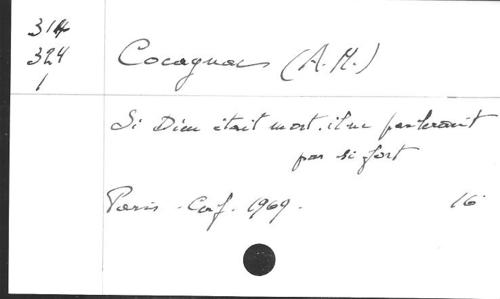 314
324
1
Cocagnac (A.M.)
Si Dieu était mort, il ne parlerait
pas si fort
Paris - Cerf. 1969.
16°